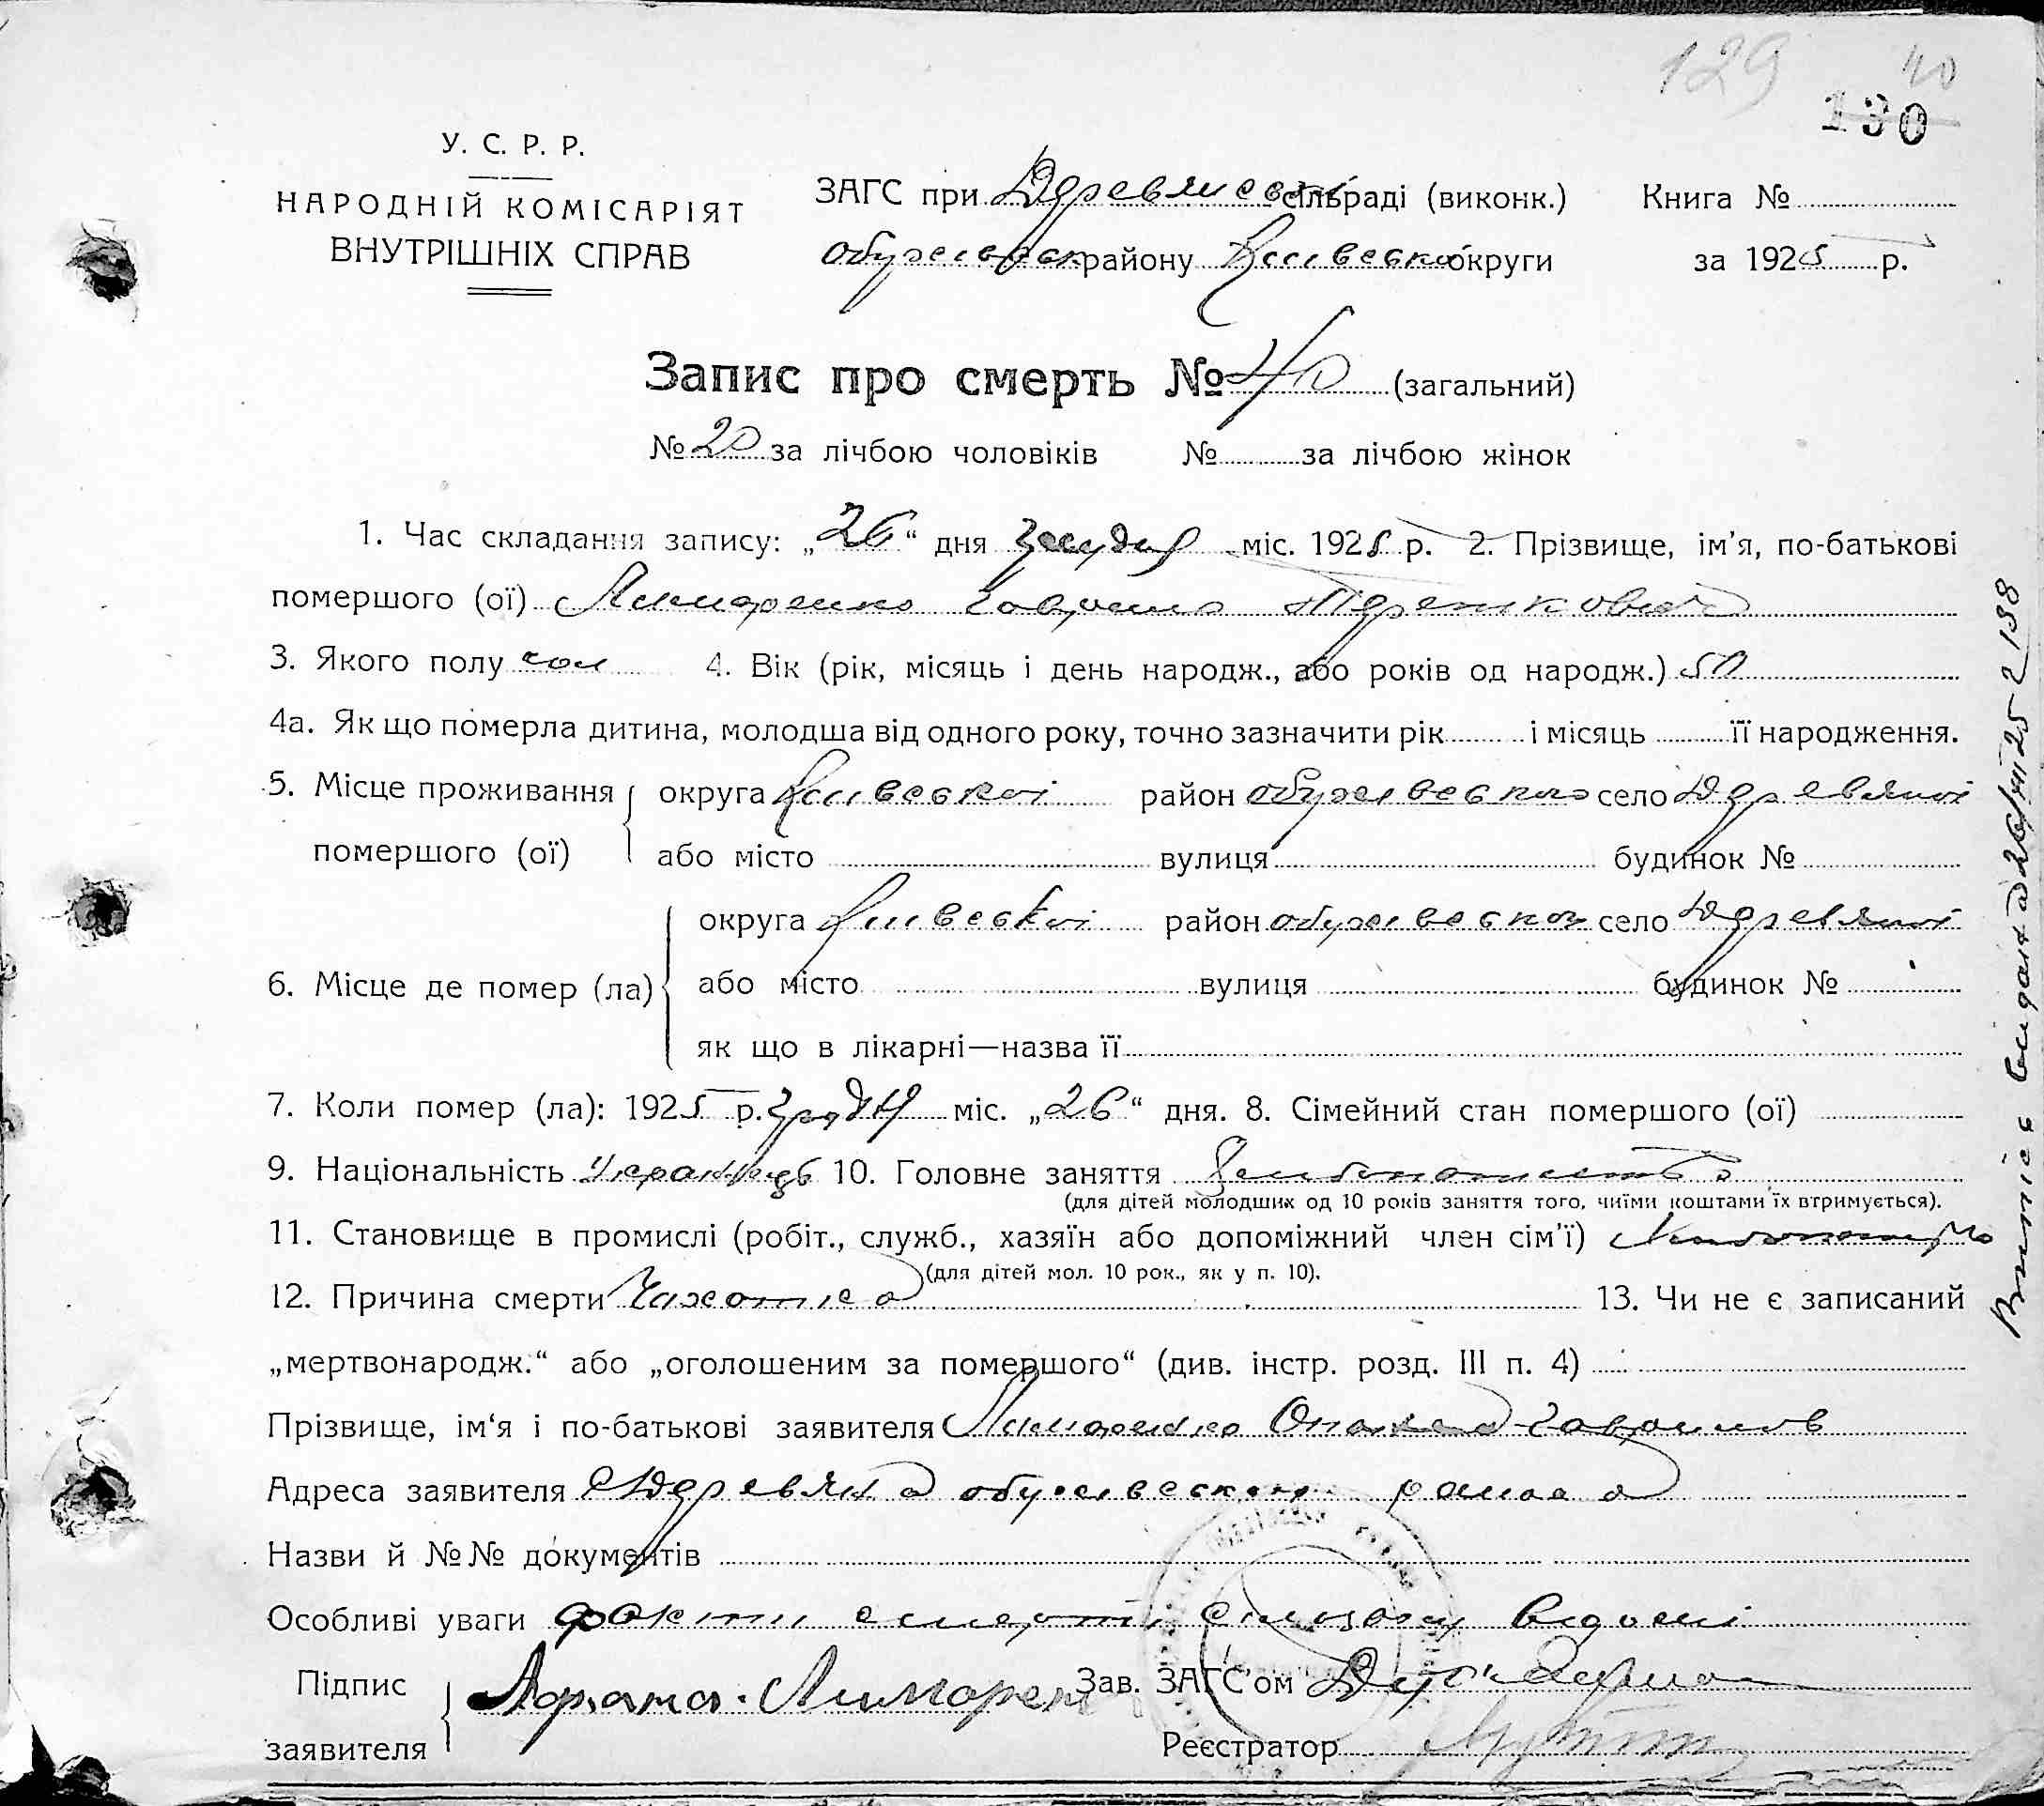 129 40
130
У. С. Р. Р.
НАРОДНІЙ КОМІСАРІЯТ
ВНУТРІШНІХ СПРАВ
ЗАГС при Деревянськ сільраді (виконк.) Книга №
Обухівськ району Київсько округи за 1925 р.
Запис про смерть № 40 (загальний)
№ 20 за лічбою чоловіків № за лічбою жінок
1. Час складання запису: „26“ дня грудня міс. 1925 р. 2. Прізвище, ім’я, по-батькові
помершого (ої) Лимаренко Гаврило
3. Якого полу чол 4. Вік (рік, місяць і день народж., або років од народж.) 50
4а. Як що померла дитина, молодша від одного року, точно зазначити рік і місяць її народження.
5. Місце проживання округа Київської район Обухівського село Деревяної
помершого (ої) або місто вулиця будинок №
округа Київської район обухівського село Деревяної
6. Місце де помер (ла) або місто вулиця будинок №
як що в лікарні—назва її
7. Коли помер (ла): 1925 р. грудня міс. „26“ дня. 8. Сімейний стан помершого (ої)
9. Національність Українець 10. Головне заняття
(для дітей молодших од 10 років заняття того, чиїми коштами їх втримується).
11. Становище в промислі (робіт., служб., хазяїн або допоміжний член сім’ї)
(для дітей мол. 10 рок., як у п. 10).
12. Причина смерти Чахотка 13. Чи не є записаний
„мертвонародж.“ або „оголошеним за помершого“ (див. інстр. розд. III п. 4)
Прізвище, ім‘я і по-батькові заявителя Лимаренко Гаврилов
Адреса заявителя с Деревяна обухівського района
Назви й №№ документів
Особливі уваги факти смерти відомі
Підпис Лимарен Зав. ЗАГС’ом
заявителя Реєстратор